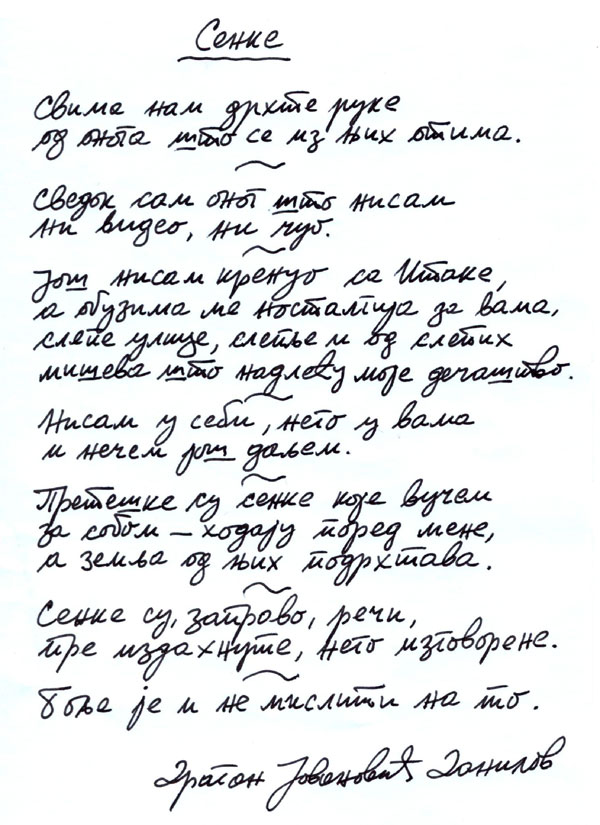 Сенке
Свима нам дрхте руке
од онога што се из њих отима.
Сведок сам оног што нисам
ни видео, ни чуо.
Још нисам кренуо са Итаке,
а обузима ме носталгија за вама,
слепе улице, слепље и од слепих
мишева што надлећу моје дечаштво.
Нисам у себи, него у вама
и нечем још даљем.
Претешке су сенке које вучем
за собом – ходају поред мене,
а земља од њих подрхтава.
Сенке су, заправо, речи,
пре издахнуте, него изговорене.
Боље је и не мислити на то.
Драган Јовановић Данилов